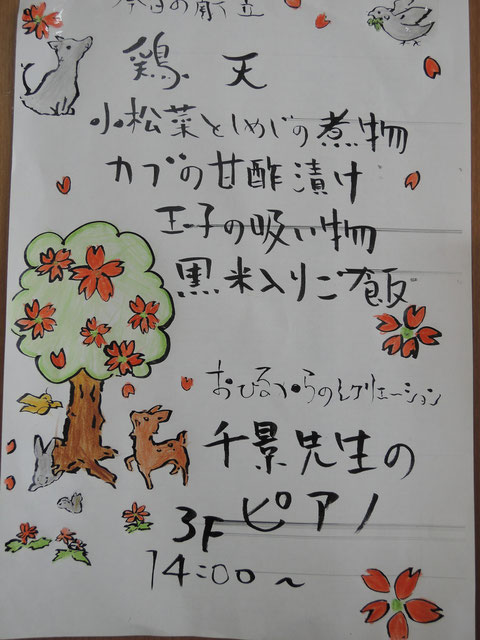 今日の献立
鶏天
小松菜としめじの煮物
カブの甘酢漬け
玉子の吸い物
黒米入りご飯
おひるからのレクリエーション
千景先生の
ピアノ
3F
14:00〜